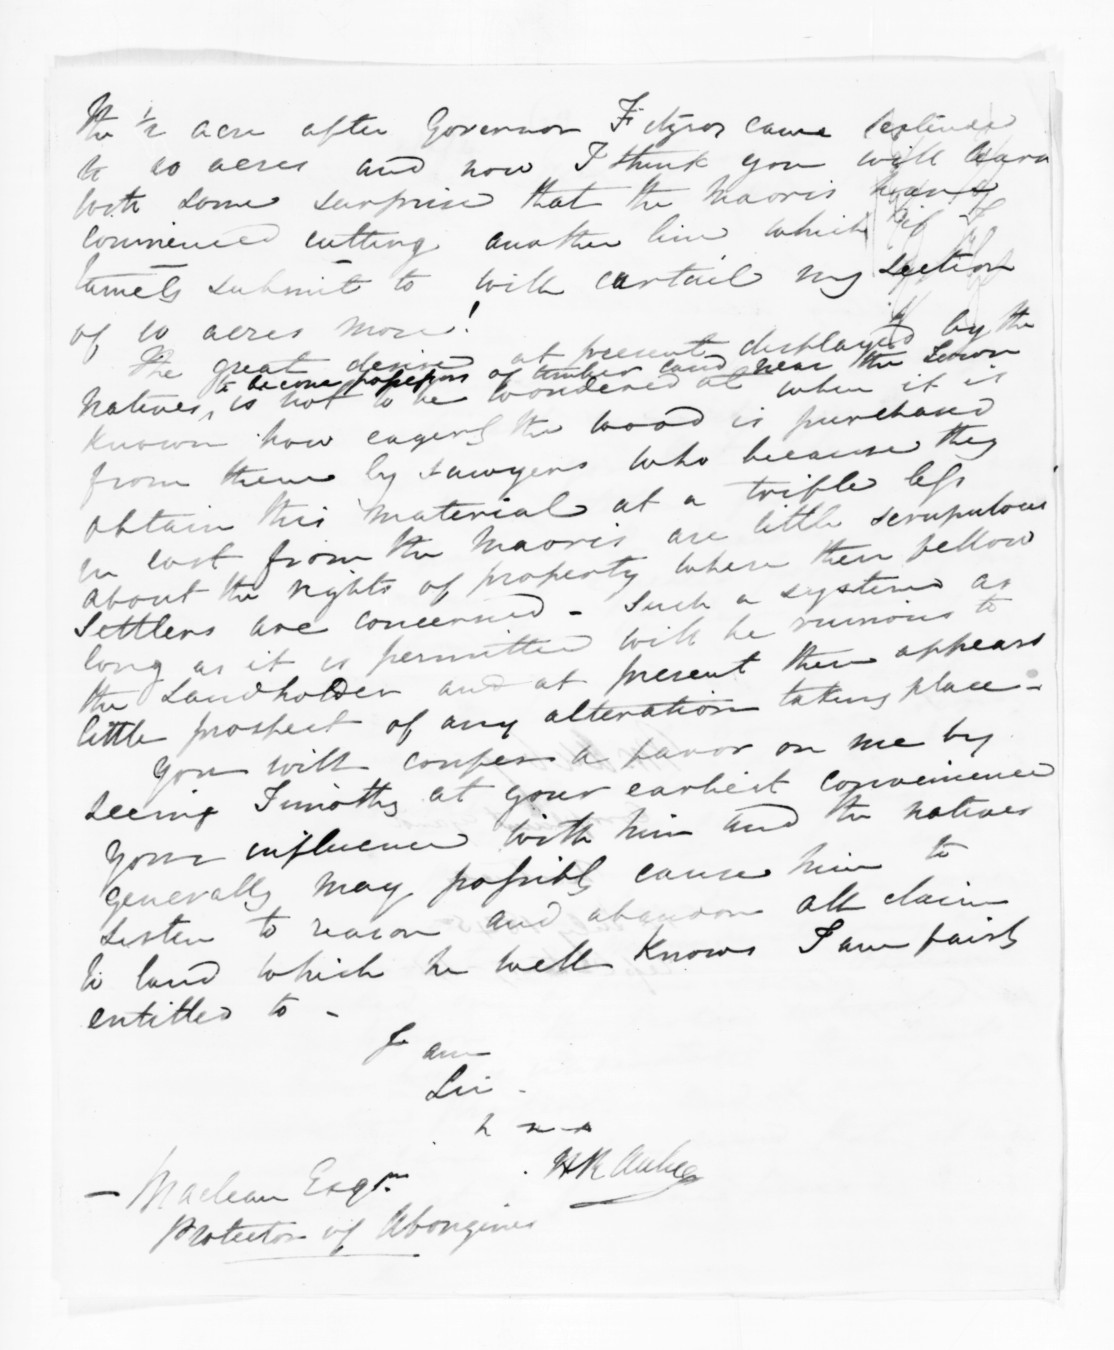 the ½ acre after Governor Fitzroy came extended
to 10 acres and now I think you will learn
with some surprise that the Maoris have
commenced cutting another line which if I
tamely submit to will curtail my section
of 10 acres more!
The great desire at present displayed by the
natives, to become possessors of timber land near the Town
is not to be wondered at when it is
known how eagerly the wood is purchased
from them by sawyers who because they
obtain this material at a trifle less
in cost from the Maoris are little scrupulous
about the rights of property where their fellow
Settlers are concerned - Such a system as
long as it is permitted will be ruinous to
the Landholder and at present there appears
little prospect of any alteration taking place -
You will confer a favor on me by
seeing Timothy at your earliest convenience
Your influence with him and the natives
generally may possibly cause him to
listen to reason and abandon all claim
to land which he well knows I am fairly
entitled to -
I am
Sir -
H R Aubrey
- Maclean Esqre.
Protector of Aborigines